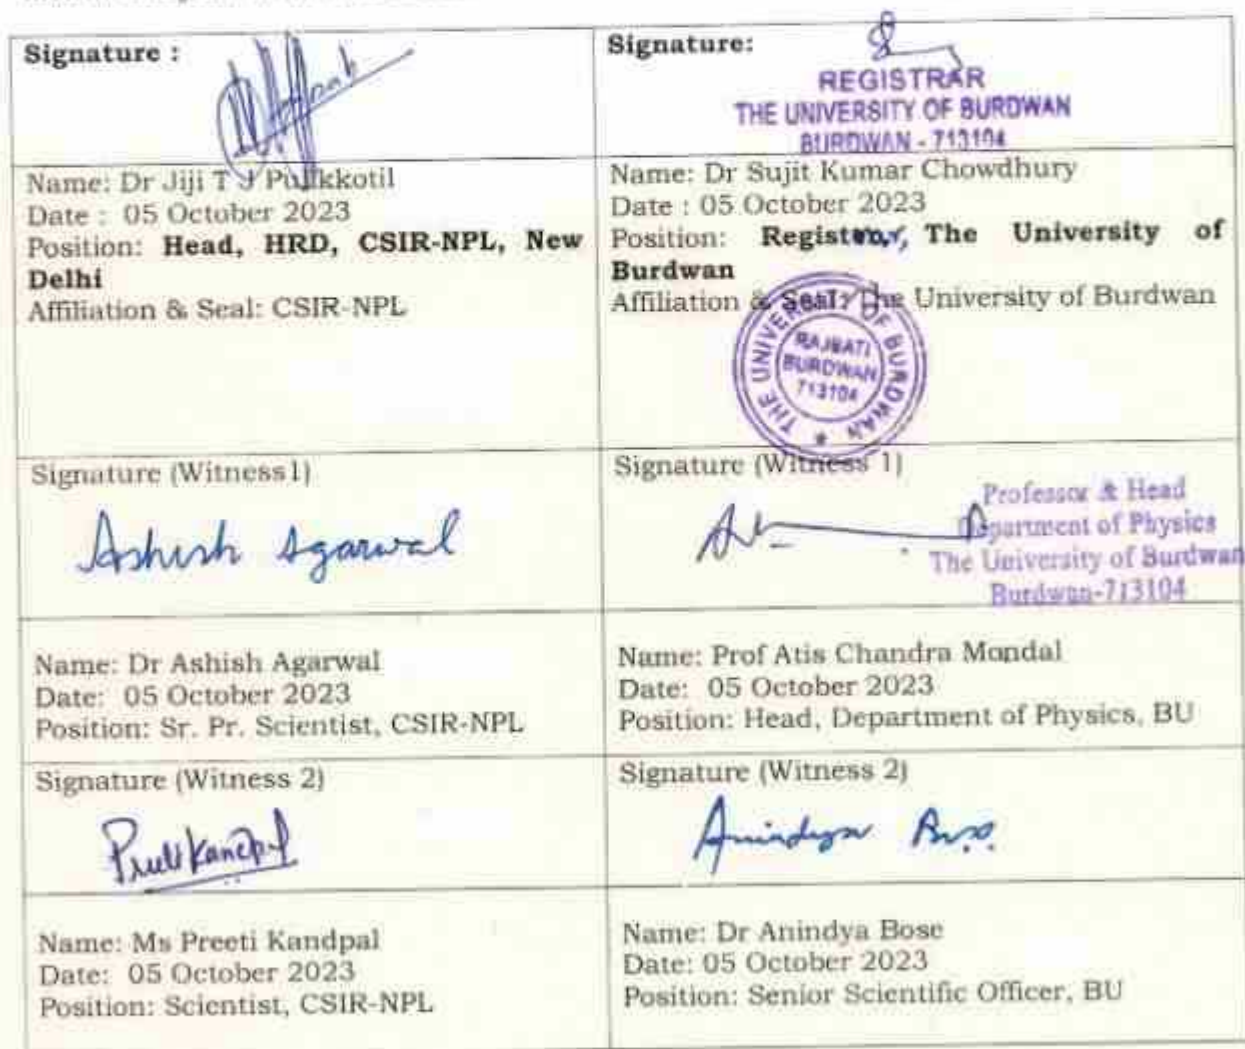 Signature :
Signature:
REGISTRAR
THE UNIVERSITY OF BURDWAN
BURDWAN - 713104
Name: Dr Jiji T J Pulikkotil
Date : 05 October 2023
Position: Head, HRD, CSIR-NPL, New
Delhi
Affiliation & Seal: CSIR-NPL
Name: Dr Sujit Kumar Chowdhury
Date : 05 October 2023
Position: Registrar, The University of
Burdwan
Affiliation & Seal: The University of Burdwan
THE UNIVERSITY OF BURDWAN
RAJBATI
BURDWAN
713104
Signature (Witness1)
Ashish Agarwal
Signature (Witness 1)
Professor & Head
Department of Physics
The University of Burdwan
Burdwan-713104
Name: Dr Ashish Agarwal
Date: 05 October 2023
Position: Sr. Pr. Scientist, CSIR-NPL
Name: Prof Atis Chandra Mondal
Date: 05 October 2023
Position: Head, Department of Physics, BU
Signature (Witness 2)
Preeti Kandpal
Signature (Witness 2)
Anindya Bose
Name: Ms Preeti Kandpal
Date: 05 October 2023
Position: Scientist, CSIR-NPL
Name: Dr Anindya Bose
Date: 05 October 2023
Position: Senior Scientific Officer, BU